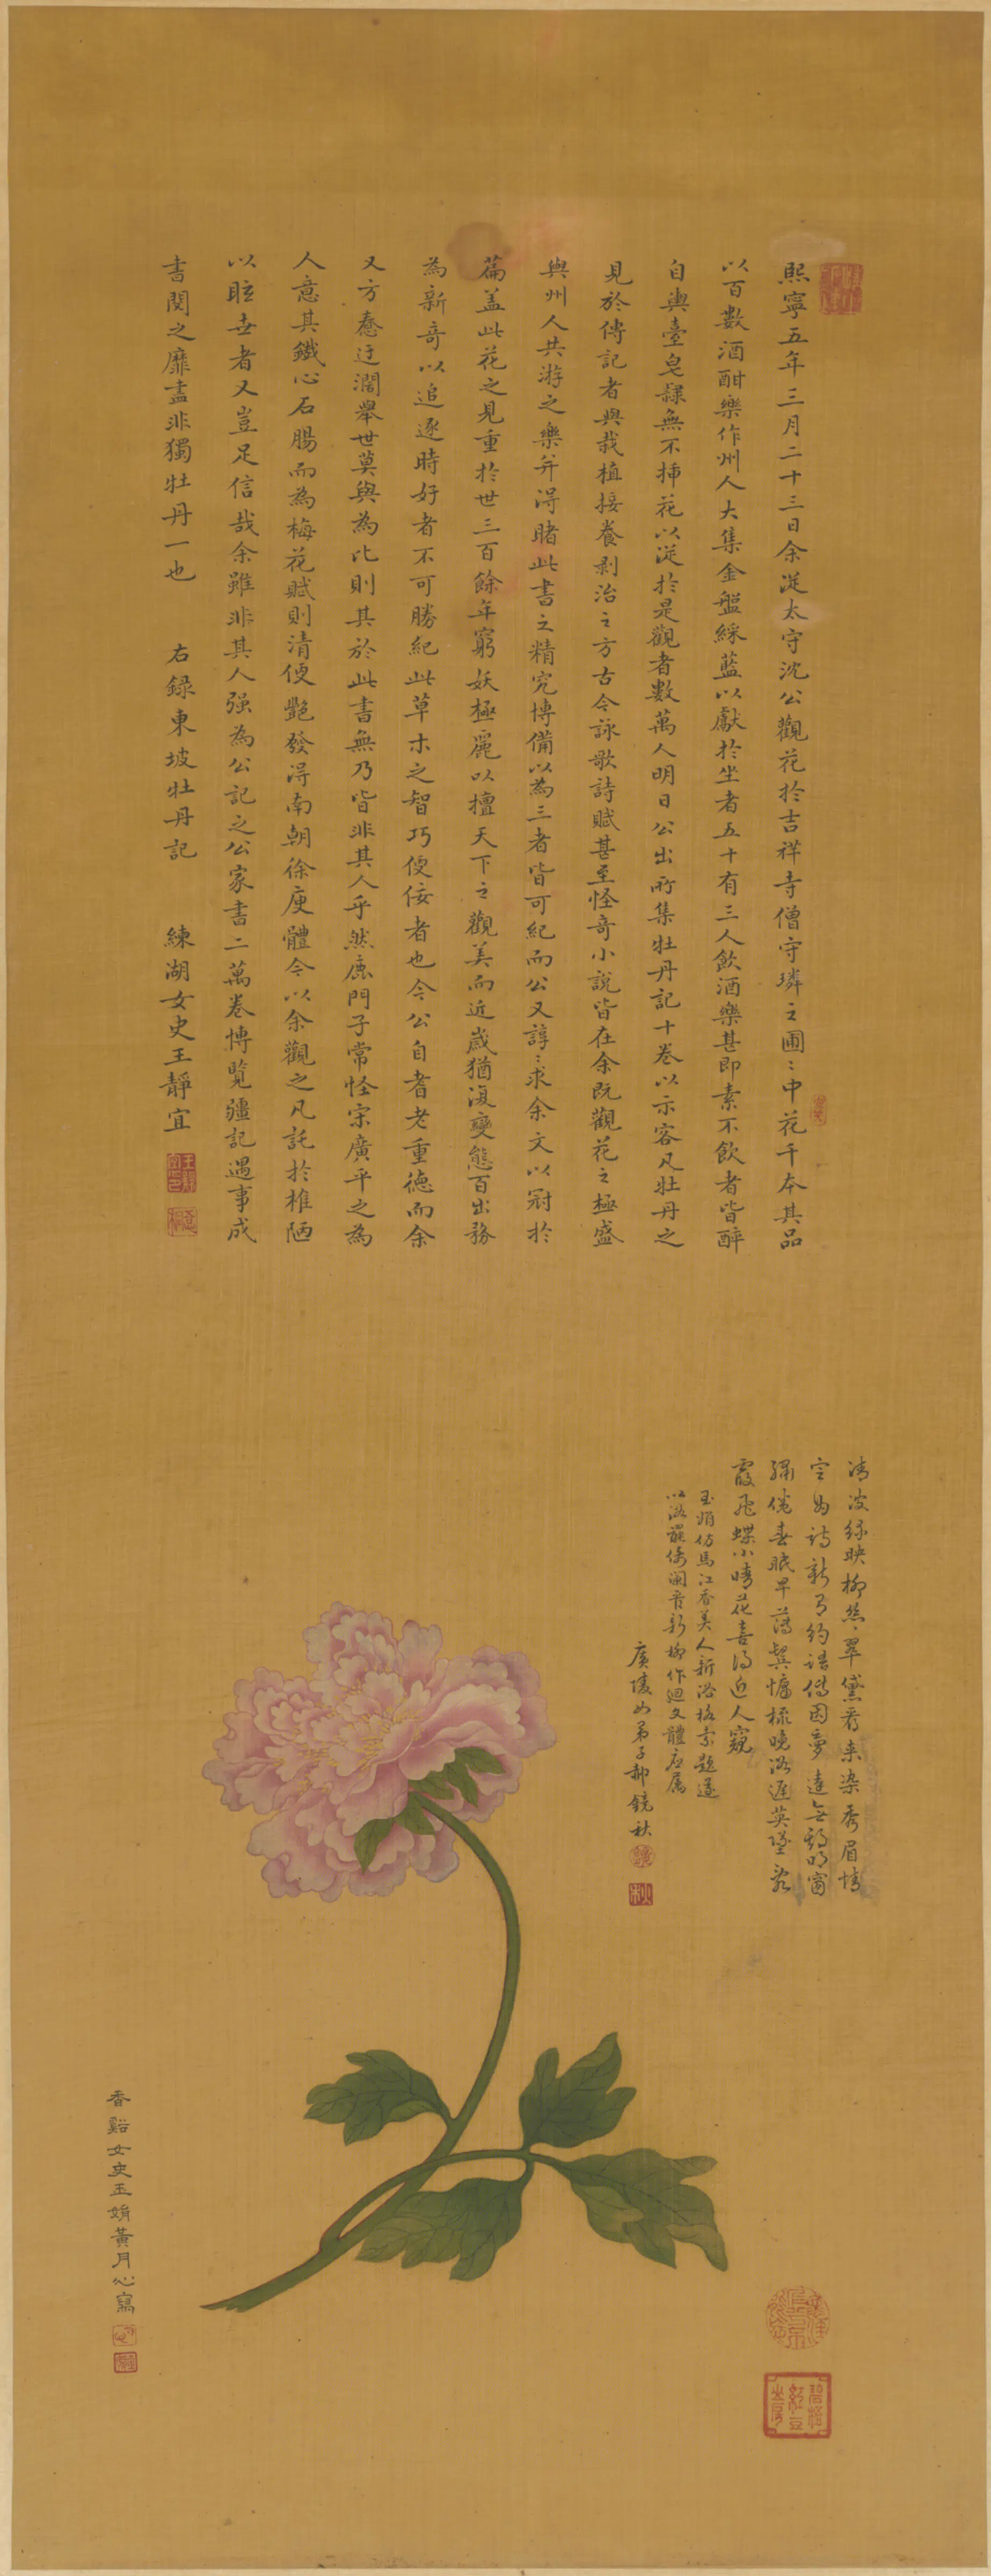 熙寧五年三月二十三日余從太守沈公觀花於吉祥寺僧守璘之圃〻中花千本其品
以百數酒酣樂作州人大集金盤綵藍以獻於坐者五十有三人飲酒樂甚即素不飲者皆醉
自輿臺皂隸無不插花以從於是觀者數萬人明日公出所集牡丹記十卷以示客凡牡丹之
見於傳記者與栽植接養剥治之方古今詠歌詩賦甚至怪奇小說皆在余既觀花之極盛
與州人共游之樂并得睹此書之精究博備以為三者皆可紀而公又諄〻求余文以冠於
篇盖此花之見重於世三百餘年窮妖極麗以擅天下之觀美而近嵗猶復變態百出務
為新奇以追逐時好者不可勝紀此草木之智巧便佞者也今公自耆老重德而余
又方惷迂濶舉世莫與為比則其於此書無乃皆非其人乎然鹿門子常怪宋廣平之為
人意其鐵心石腸而為梅花賦則清便艷發得南朝徐庾體今以余觀之凡託於椎陋
以眩世者又豈足信哉余雖非其人强為公記之公家書二萬卷博覧疆記遇事成
書閱之靡盡非獨牡丹一也
右錄東坡牡丹記
練湖女史王靜宜
清波緑映柳絲翠黛看来染秀眉情
空為詩新有約語傳因夢達無明窗
繡倦春眠早薄鬂慵梳晚浴遲英墜
霞飛蝶小晴花喜得近人窺
玉娟仿馬江香美人新浴格索題遂
以浴罷倚闌看新柳作迴文體應属
廣陵女弟子郝鏡秋
香谿女史玉娟黃月心寫